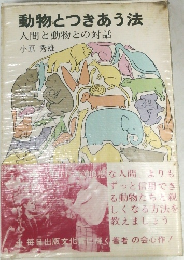 動物とつきあう法
人間と動物との対話
小原秀雄
な人間よりも
ずっと信用でき
る動物たちと親
しくなる方法を
教えましょう
毎日出版文化賞に輝く著者の会心作!